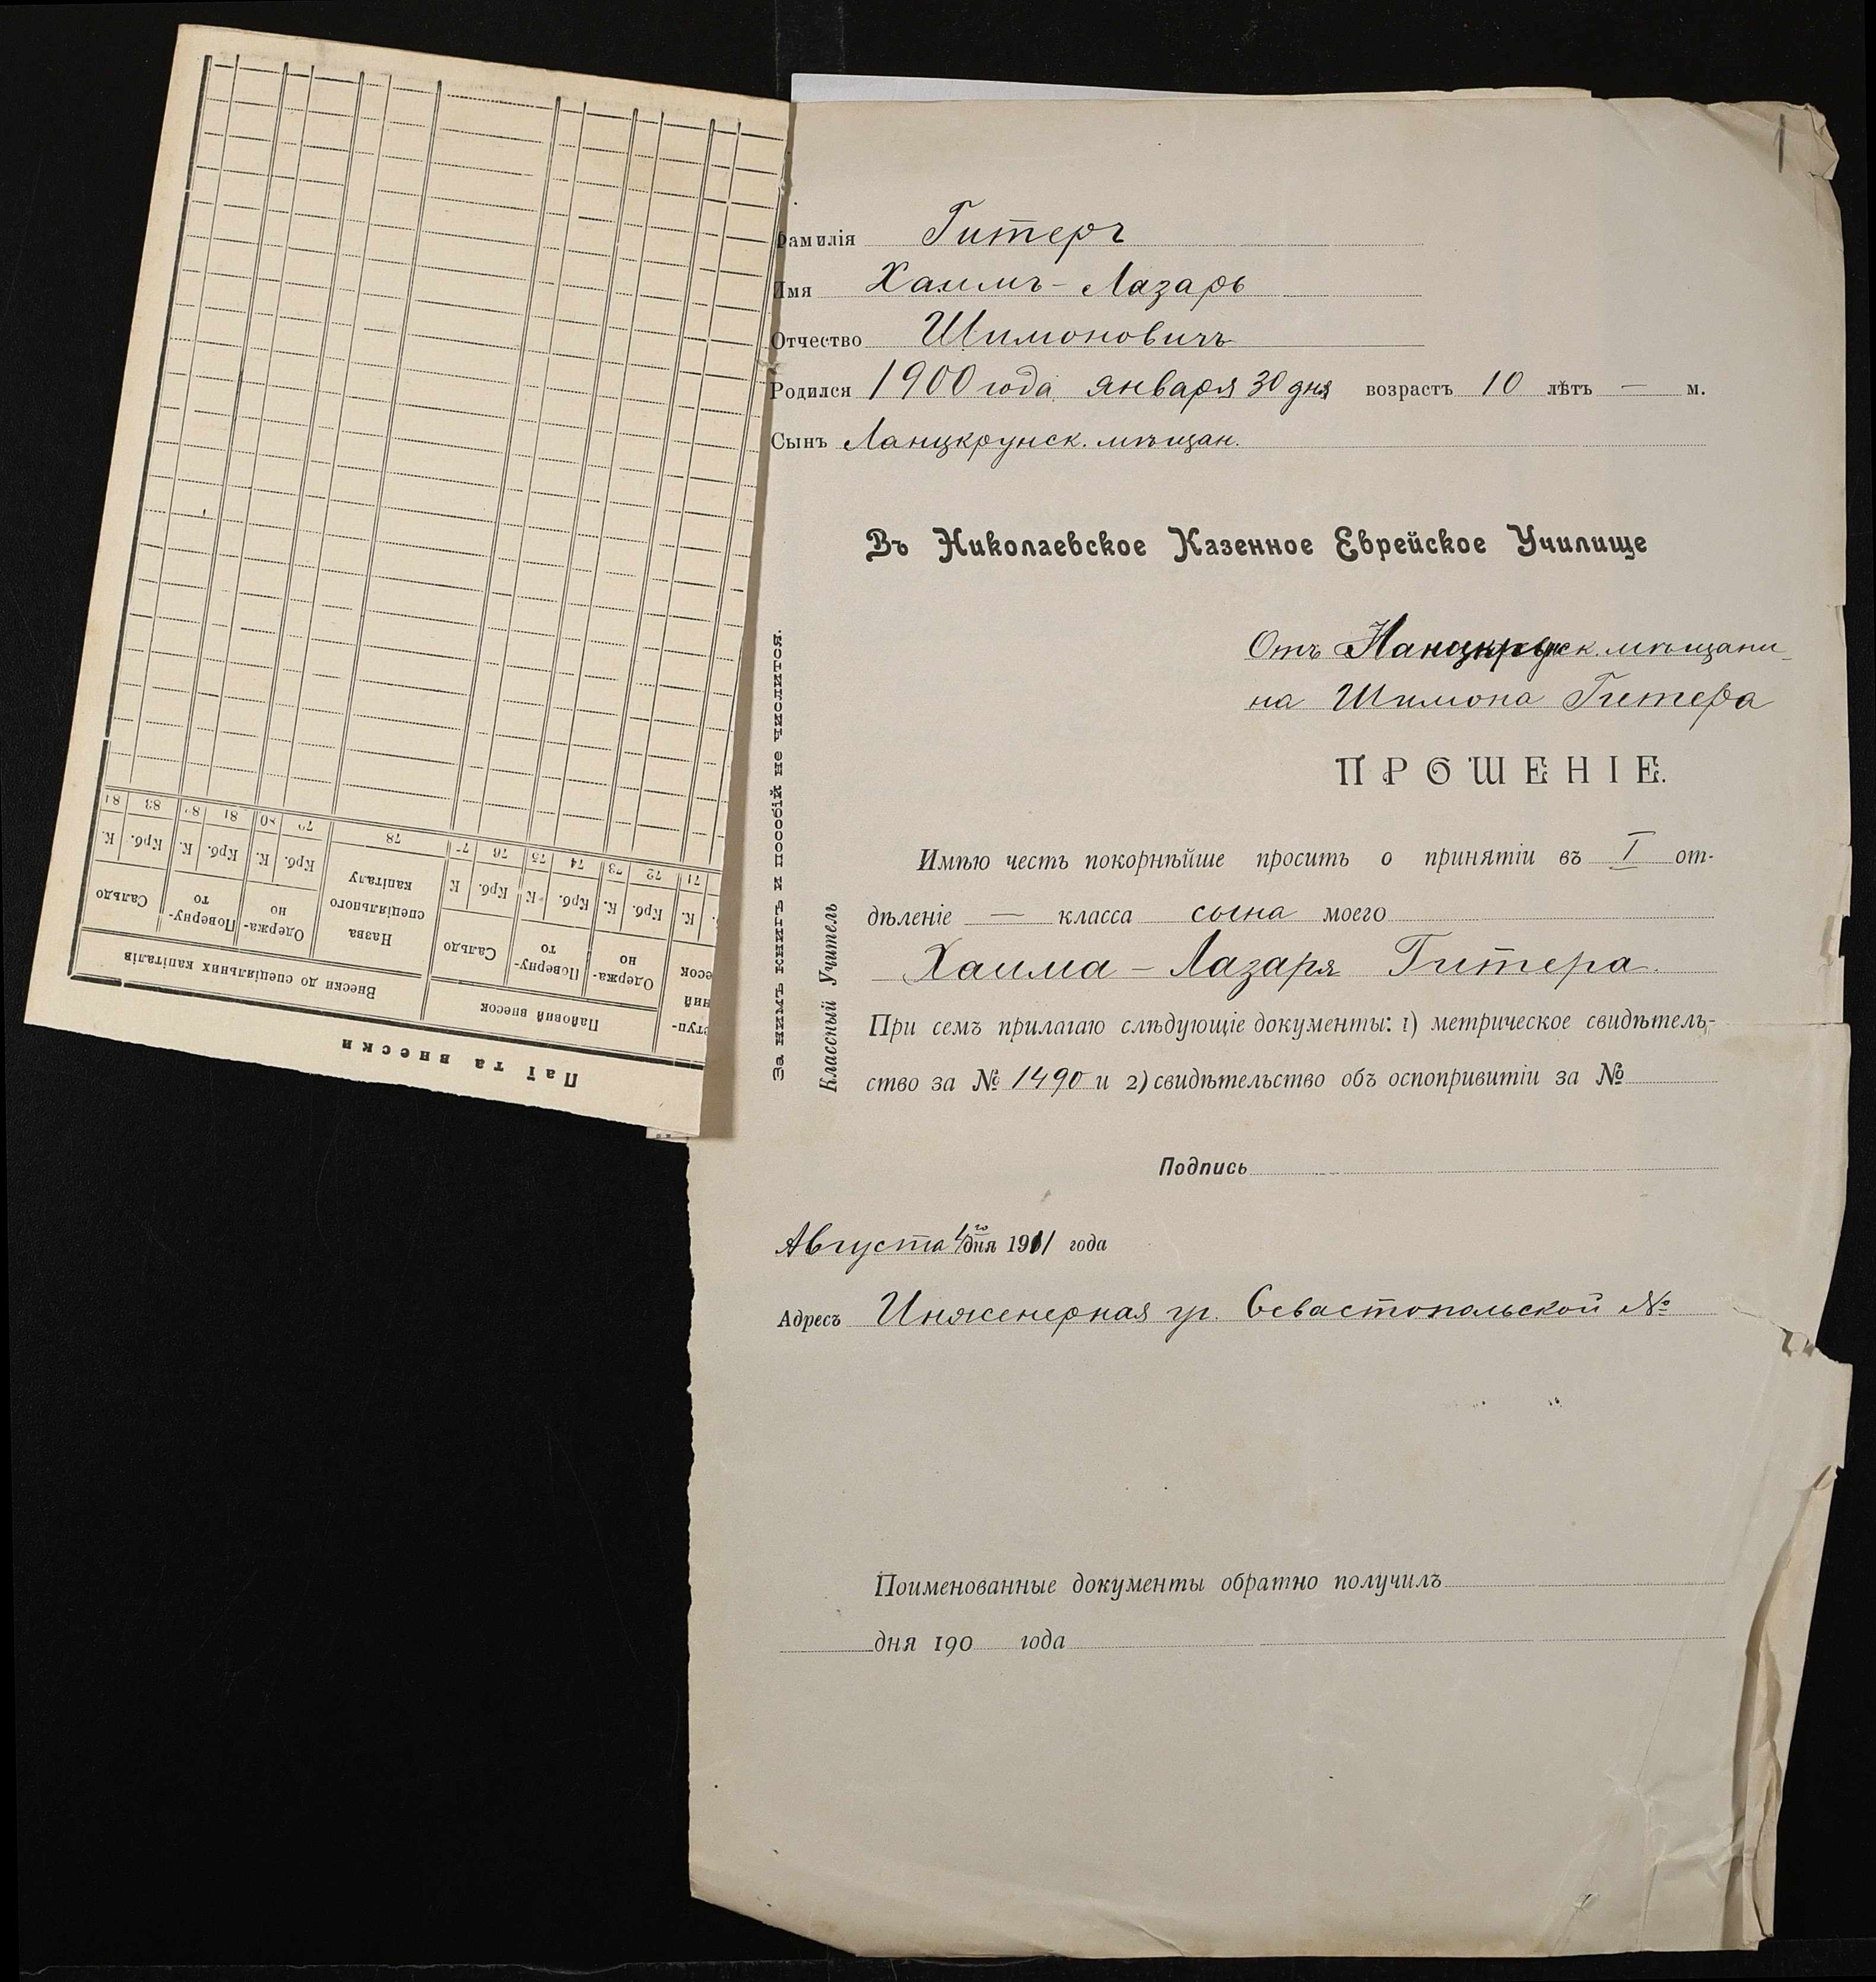 1
Фамилія Гитеръ
Имя Хаимъ-Лазарь
Отчество Шимоновичъ
Родился 1900 года января 30 дня возрастъ 10 лѣтъ — м.
Сынъ Ланцкрунск. мѣщан.
Въ Николаевское Казенное Еврейское Училище
Отъ Ланцкрунск. мѣщани-
на Шимона Гитера
ПРОШЕНІЕ.
Имѣю честь покорнѣйше просить о принятіи въ I от-
дѣленіе — класса сына моего
Хаима-Лазаря Гитера.
При семъ прилагаю слѣдующіе документы: 1) метрическое свидѣтель-
ство за № 1490 и 2) свидѣтельство объ оспопривитіи за №
Подпись
Августа 1го дня 1911 года
Адресъ Инженерная уг. Севастопольской №
Поименованные документы обратно получилъ
дня 190 года
За нимъ книгъ и пособій не числится.
Классный Учитель
Паї та внески
туп- Пайовий внесок Внески до спеціяльних капіталів
ний
есок Одержа- Поверну- Сальдо Назва Одержа- Поверну- Сальдо
но то спеціяльного но то
капіталу
К. Крб. К. Крб. К. Крб. К Крб. К. Крб. К. Крб. К.
71 72 73 74 75 76 77 78 79 80 81 82 83 84